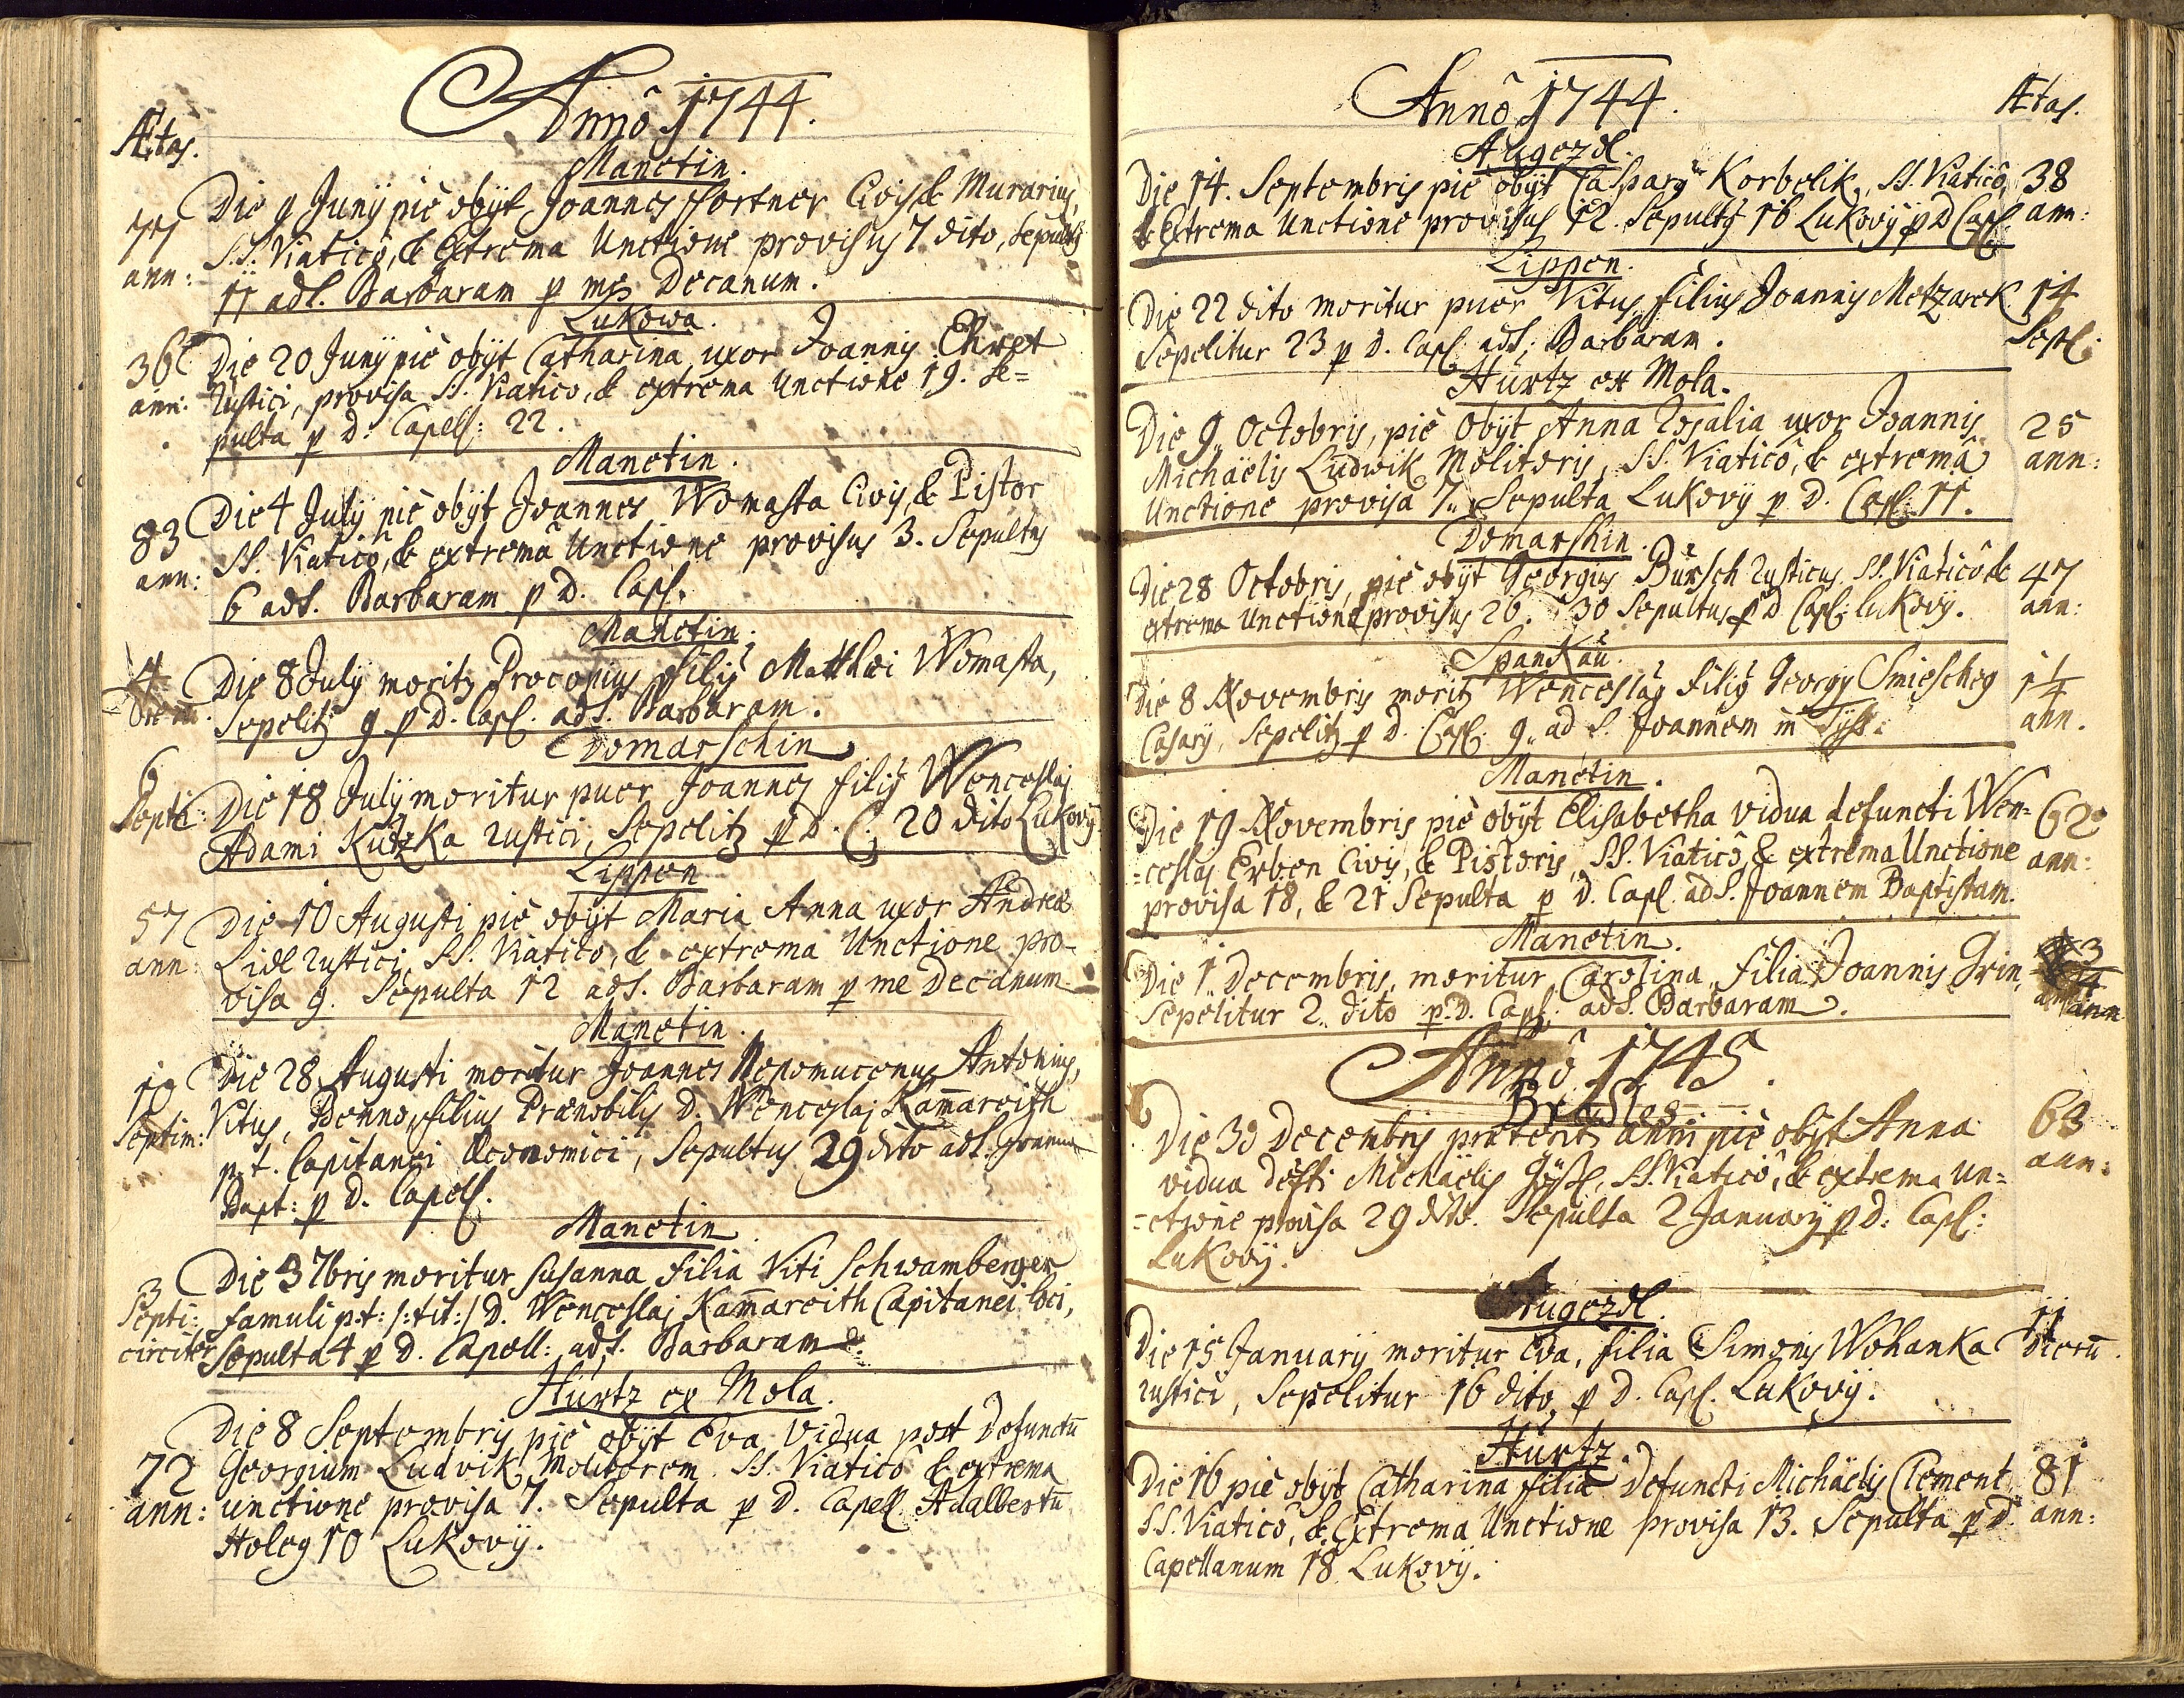 Annô 1744.
Ætas.
Manetin.
Die 9 Junÿ piè obÿt Joannes Fortner Civis & Murarius,
77 ann: SS. Viaticô, & Extrema Unctione provisus 7 dito, sepultus
11 ad S. Barbaram p me Decanum.
Lukowa.
36 ann: Die 20 Junÿ piè obÿt Catharina uxor Joannis Ehret
Rustici, provisa SS. Viatico, & extrema Unctione 19. Se=
pulta p D: Capell: 22.
Manetin.
Die 4 Julÿ piè obÿt Joannes Womasta Civis, & Pistor
83 ann: SS. Viaticô, & extremâ Unctione provisus 3. Sepultus
6 ad S. Barbaram p D. Capl.
Manetin.
4 Die 8 Julÿ moritur Procopius filius Matthæi Womasta,
Sepelitur 9 p D. Capl. ad S. Barbaram.
Domarschin
6 Septi: Die 18 Julÿ moritur puer Joannes filius Wenceslai
Adami Kutzka rustici, Sepelitur p D. C. 20 dito Lukovÿ.
Lippen
57 ann: Die 10 Augusti piè obÿt Maria Anna uxor Andreæ
Lidl rustici, SS. Viatico, & extrema Unctione pro-
visa 9. Sepulta 12 ad S. Barbaram p me Decanum.
Manetin.
Die 28 Augusti moritur Joannes Nepomucenus Antonius,
Septim: Vitus, Benno, filius Prænobilis D. Wenceslai Kam̄areith
p. t. Capitanei Œconomici, Sepultus 29 dito ad S. Joannem
Bapt: p D. Capell.
Manetin
3 Septi: circiter Die 3 7bris moritur Susanna filia Viti Schwamberger
famuli p: t: /: tit: / D. Wenceslai Kam̄areith Capitanei loci,
Sepulta 4 p D. Capell: ad S. Barbaram.
Hurtz ex Mola.
Die 8 Septembris piè obÿt Eva vidua post Defunctū
72 ann: Georgium Ludvik Molitorem SS. Viaticô & extrema
unctione provisa 7. Sepulta p D. Capell Adalbertū
Holeg 10 Lukovÿ.
Annô 1744.
Ætas.
Augezdl.
Die 14. Septembris piè obÿt Casparg Korbelik, SS. Viaticô, 38 ann:
& Extrema Unctione provisus 12. Sepultus 16 Lukovÿ p D Capl
Lippen.
Die 22 dito moritur puer Vitus, filius Joannis Metzarek 14 Sept:
Sepelitur 23 p D. Capl ad S. Barbaram.
Hurtz ex Mola.
Die 9 Octobris, piè obÿt Anna Rosalia uxor Joannis 25 ann:
Michäelis Ludwik Molitoris, SS. Viaticô, & extremâ
Unctione provisa 7. Sepulta Lukovÿ p D. Capl: 11.
Domarshin.
Die 28 Octobris, piè obÿt Georgius Bursch rusticus SS. Viaticô & 47 ann:
extrema Unctione provisus 26. 30 Sepultus p D Capl: Lukovÿ.
Spankau.
Die 8 Novembris moritur Wenceslaus filius Georgÿ Smiescheg 1 1/4 ann.
Casarÿ, Sepelitur p D. Capl. 9 ad S. Joannem in
Manetin.
Die 19 Novembris piè obÿt Elisabetha vidua defuncti Wen= 62 ann:
=ceslai Erben Civis, & Pistoris, SS. Viaticô, & extrema Unctione
provisa 18, & 21 Sepulta p D. Capl. ad S. Joannem Baptistam.
Manetin.
Die 1 Decembris, moritur Carolina filia Joannis Grin, 3/4 ann
Sepelitur 2 dito p. D. Capl. ad S. Barbaram.
Annô 1745.
Brdles
Die 30 Decembris præteriti anni piè obÿt Anna 63 ann:
vidua Defti Michaëlis SS. Viaticô, & extrema Un=
=ctione provisa 29 dito. Sepulta 2 Januarÿ p D: Capl:
Lukovÿ.
Augezdl.
Die 15 Januarÿ moritur Eva, filia Simonis Wohanka 11 dierū.
rustici, Sepelitur 16 dito p D. Capl. Lukovÿ.
Hurtz.
Die 16 piè obÿt Catharina filia Defuncti Michäelis Clement 81 ann:
SS. Viatico, & Extrema Unctione provisa 13. Sepulta p D.
Capellanum 18 Lukovÿ.